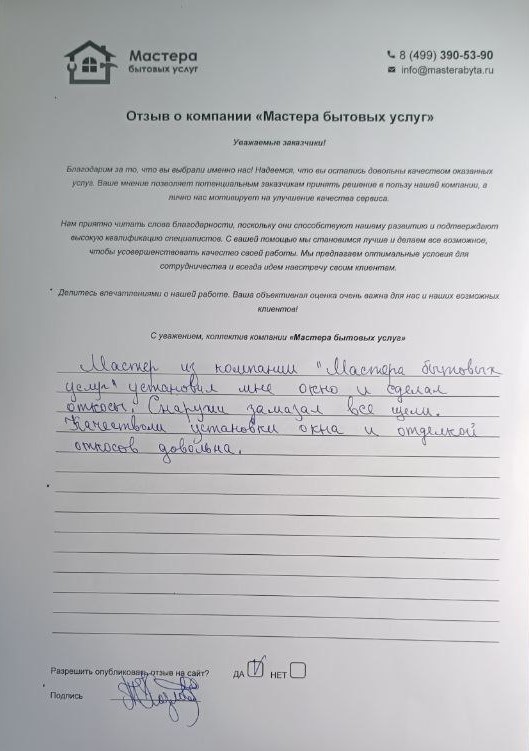 Мастера
бытовых услуг
8 (499) 390-53-90
info@masterabyta.ru
Отзыв о компании «Мастера бытовых услуг»
Уважаемые заказчики!
Благодарим за то, что вы выбрали именно нас! Надеемся, что вы остались довольны качеством оказанных
услуг. Ваше мнение позволяет потенциальным заказчикам принять решение в пользу нашей компании, а
лично нас мотивирует на улучшение качества сервиса.
Нам приятно читать слова благодарности, поскольку они способствуют нашему развитию и подтверждают
высокую квалификацию специалистов. С вашей помощью мы становимся лучше и делаем все возможное,
чтобы усовершенствовать качество своей работы. Мы предлагаем оптимальные условия для
сотрудничества и всегда идем навстречу своим клиентам.
Делитесь впечатлениями о нашей работе. Ваша объективная оценка очень важна для нас и наших возможных
клиентов!
С уважением, коллектив компании «Мастера бытовых услуг»
Мастер из компании "Мастера бытовых
услуг" установил мне окно и сделал
откосы. Снаружи замазал все щели.
Качеством установки окна и отделкой
откосов довольна.
Разрешить опубликовать отзыв на сайт? ДА НЕТ
Подпись